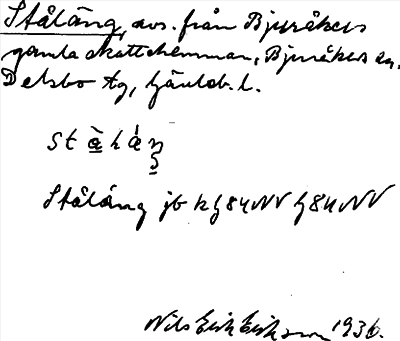 Ståläng, avs. från Bjuråkers
gamla skattehemman, Bjuråkers sn.
Delsbo tg, Gävleb. l.
Ståläng jb k 84NV 84NV
Nils Erik Eriksson 1936.